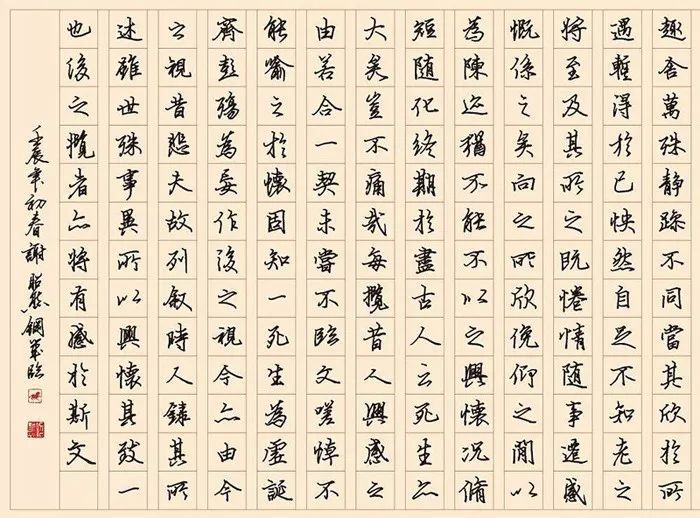 趣舍萬殊静躁不同當其欣於所
遇暫得於己怏然自足不知老之
將至及其所之既惓情随事遷感
慨係之矣向之所欣俛仰之閒以
為陳迹猶不能不以之興懷況脩
短随化終期於盡古人云死生亦
大矣豈不痛哉每攬昔人興感之
由若合一契未嘗不臨文嗟悼不
能喻之於懷固知一死生為虛誕
齊彭殤為妄作後之視今亦由今
之視昔悲夫故列叙時人錄其所
述雖世殊事異所以興懷其致一
也後之攬者亦將有感於斯文
壬辰年初春謝昭鋼筆臨